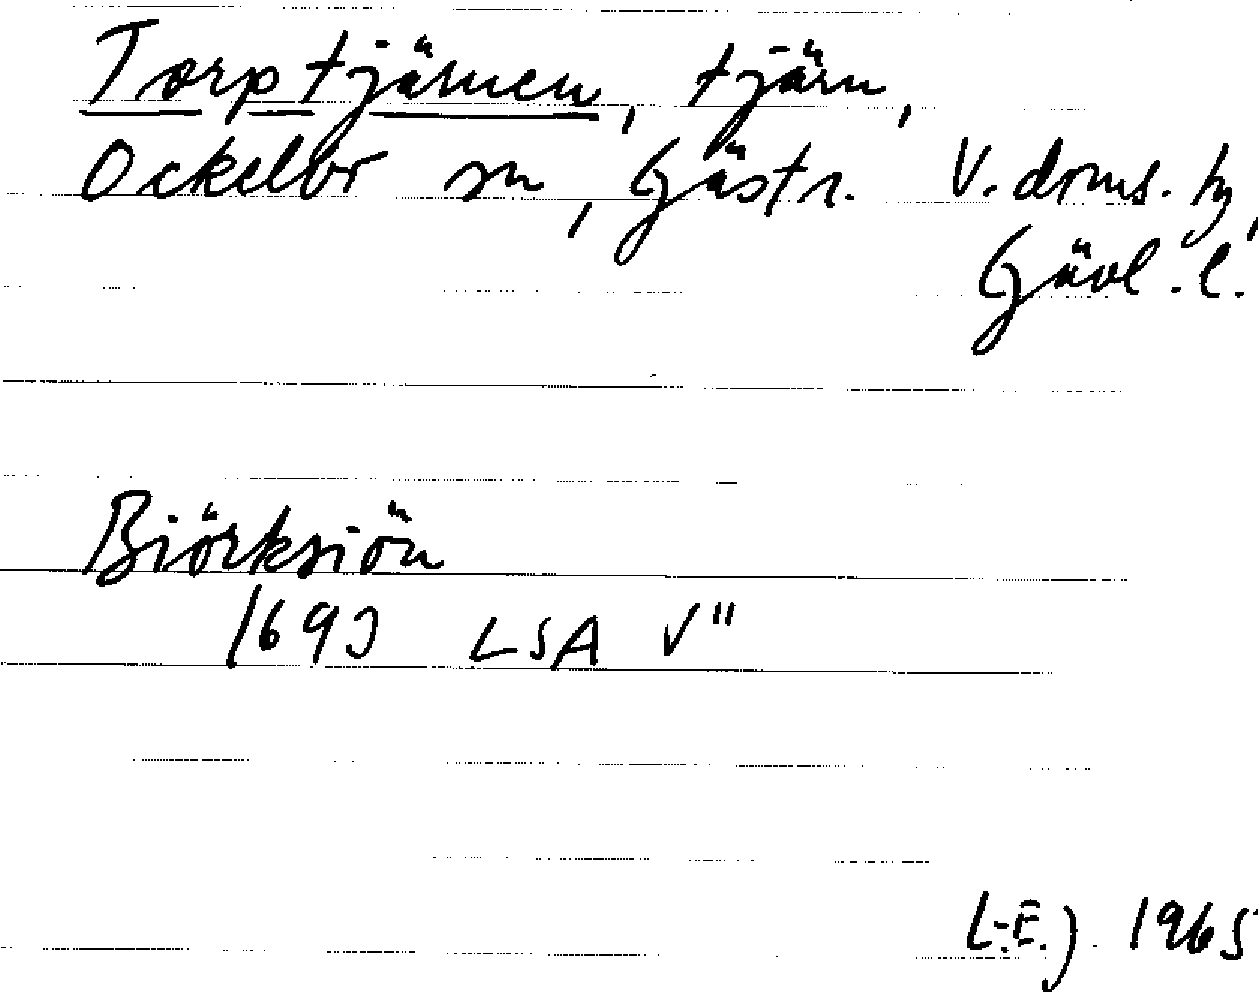 Torptjärnen, tjärn,
Ockelbo sn, Gästr. V. doms. hg,
Gävl. l.
Biörksiön
1693 LSA V"
L-E.J. 1965